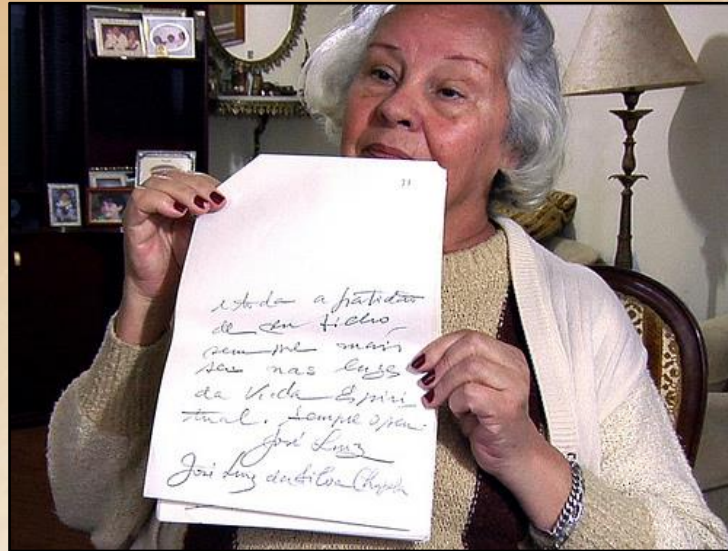 31
e toda a gratidão
de seu filho
sempre mais
seu nas luzes
da Vida Espiri
tual. Sempre o seu
José Luiz
José Luiz da Silva